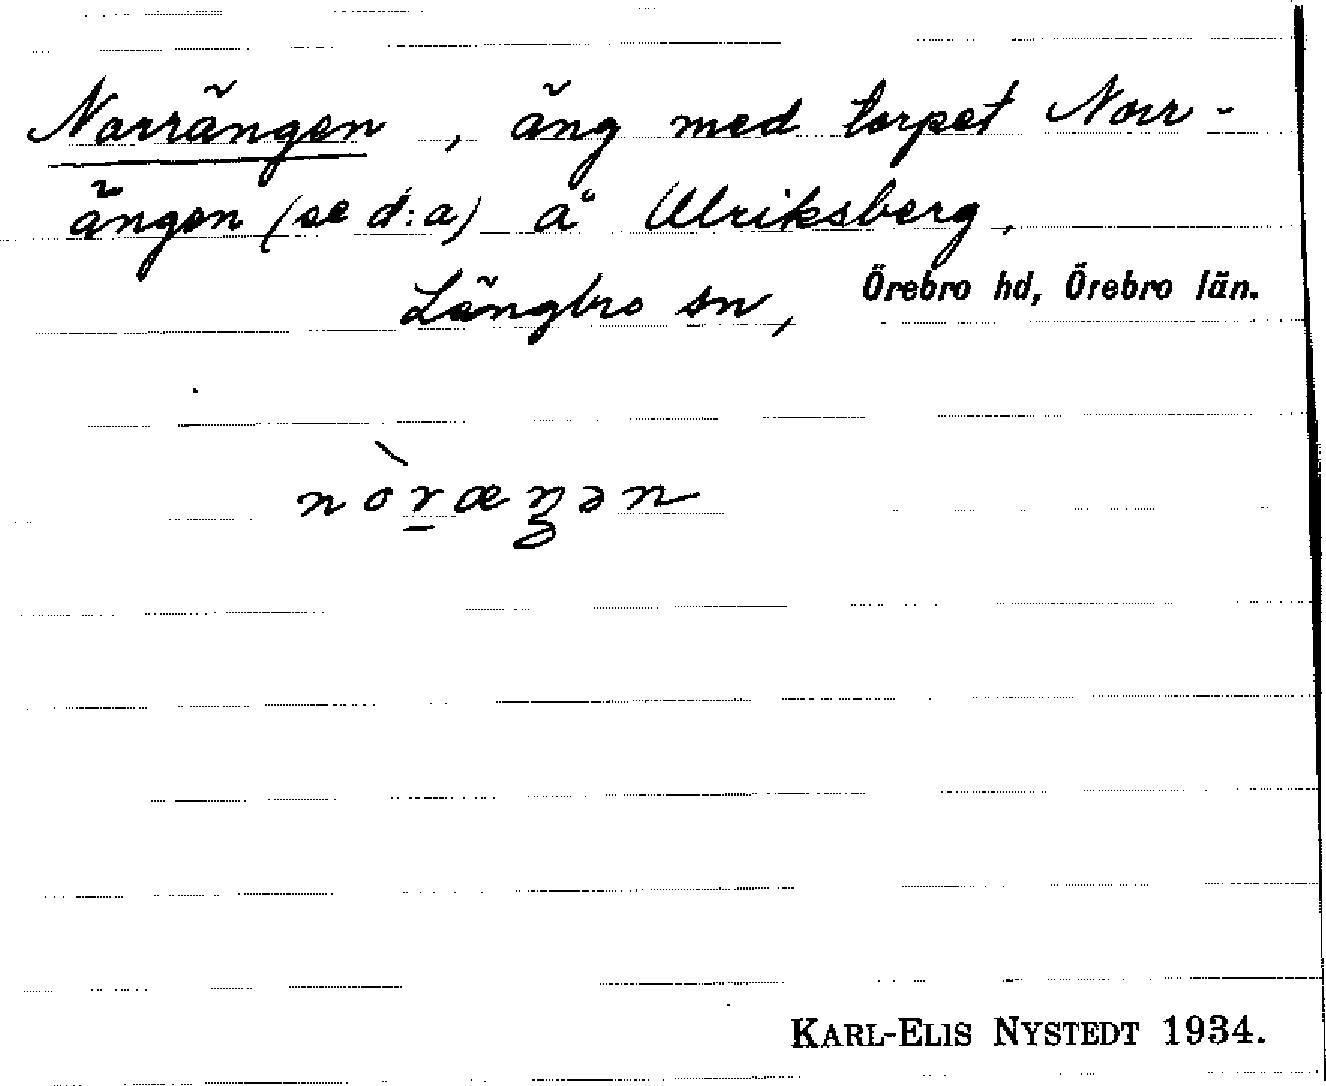 Norrängen, äng med torpet Norr-
ängen (se d:a) å Ulriksberg,
Längbro sn, Örebro hd, Örebro län.
nòr̲æŋən
KARL-ELIS NYSTEDT 1934.